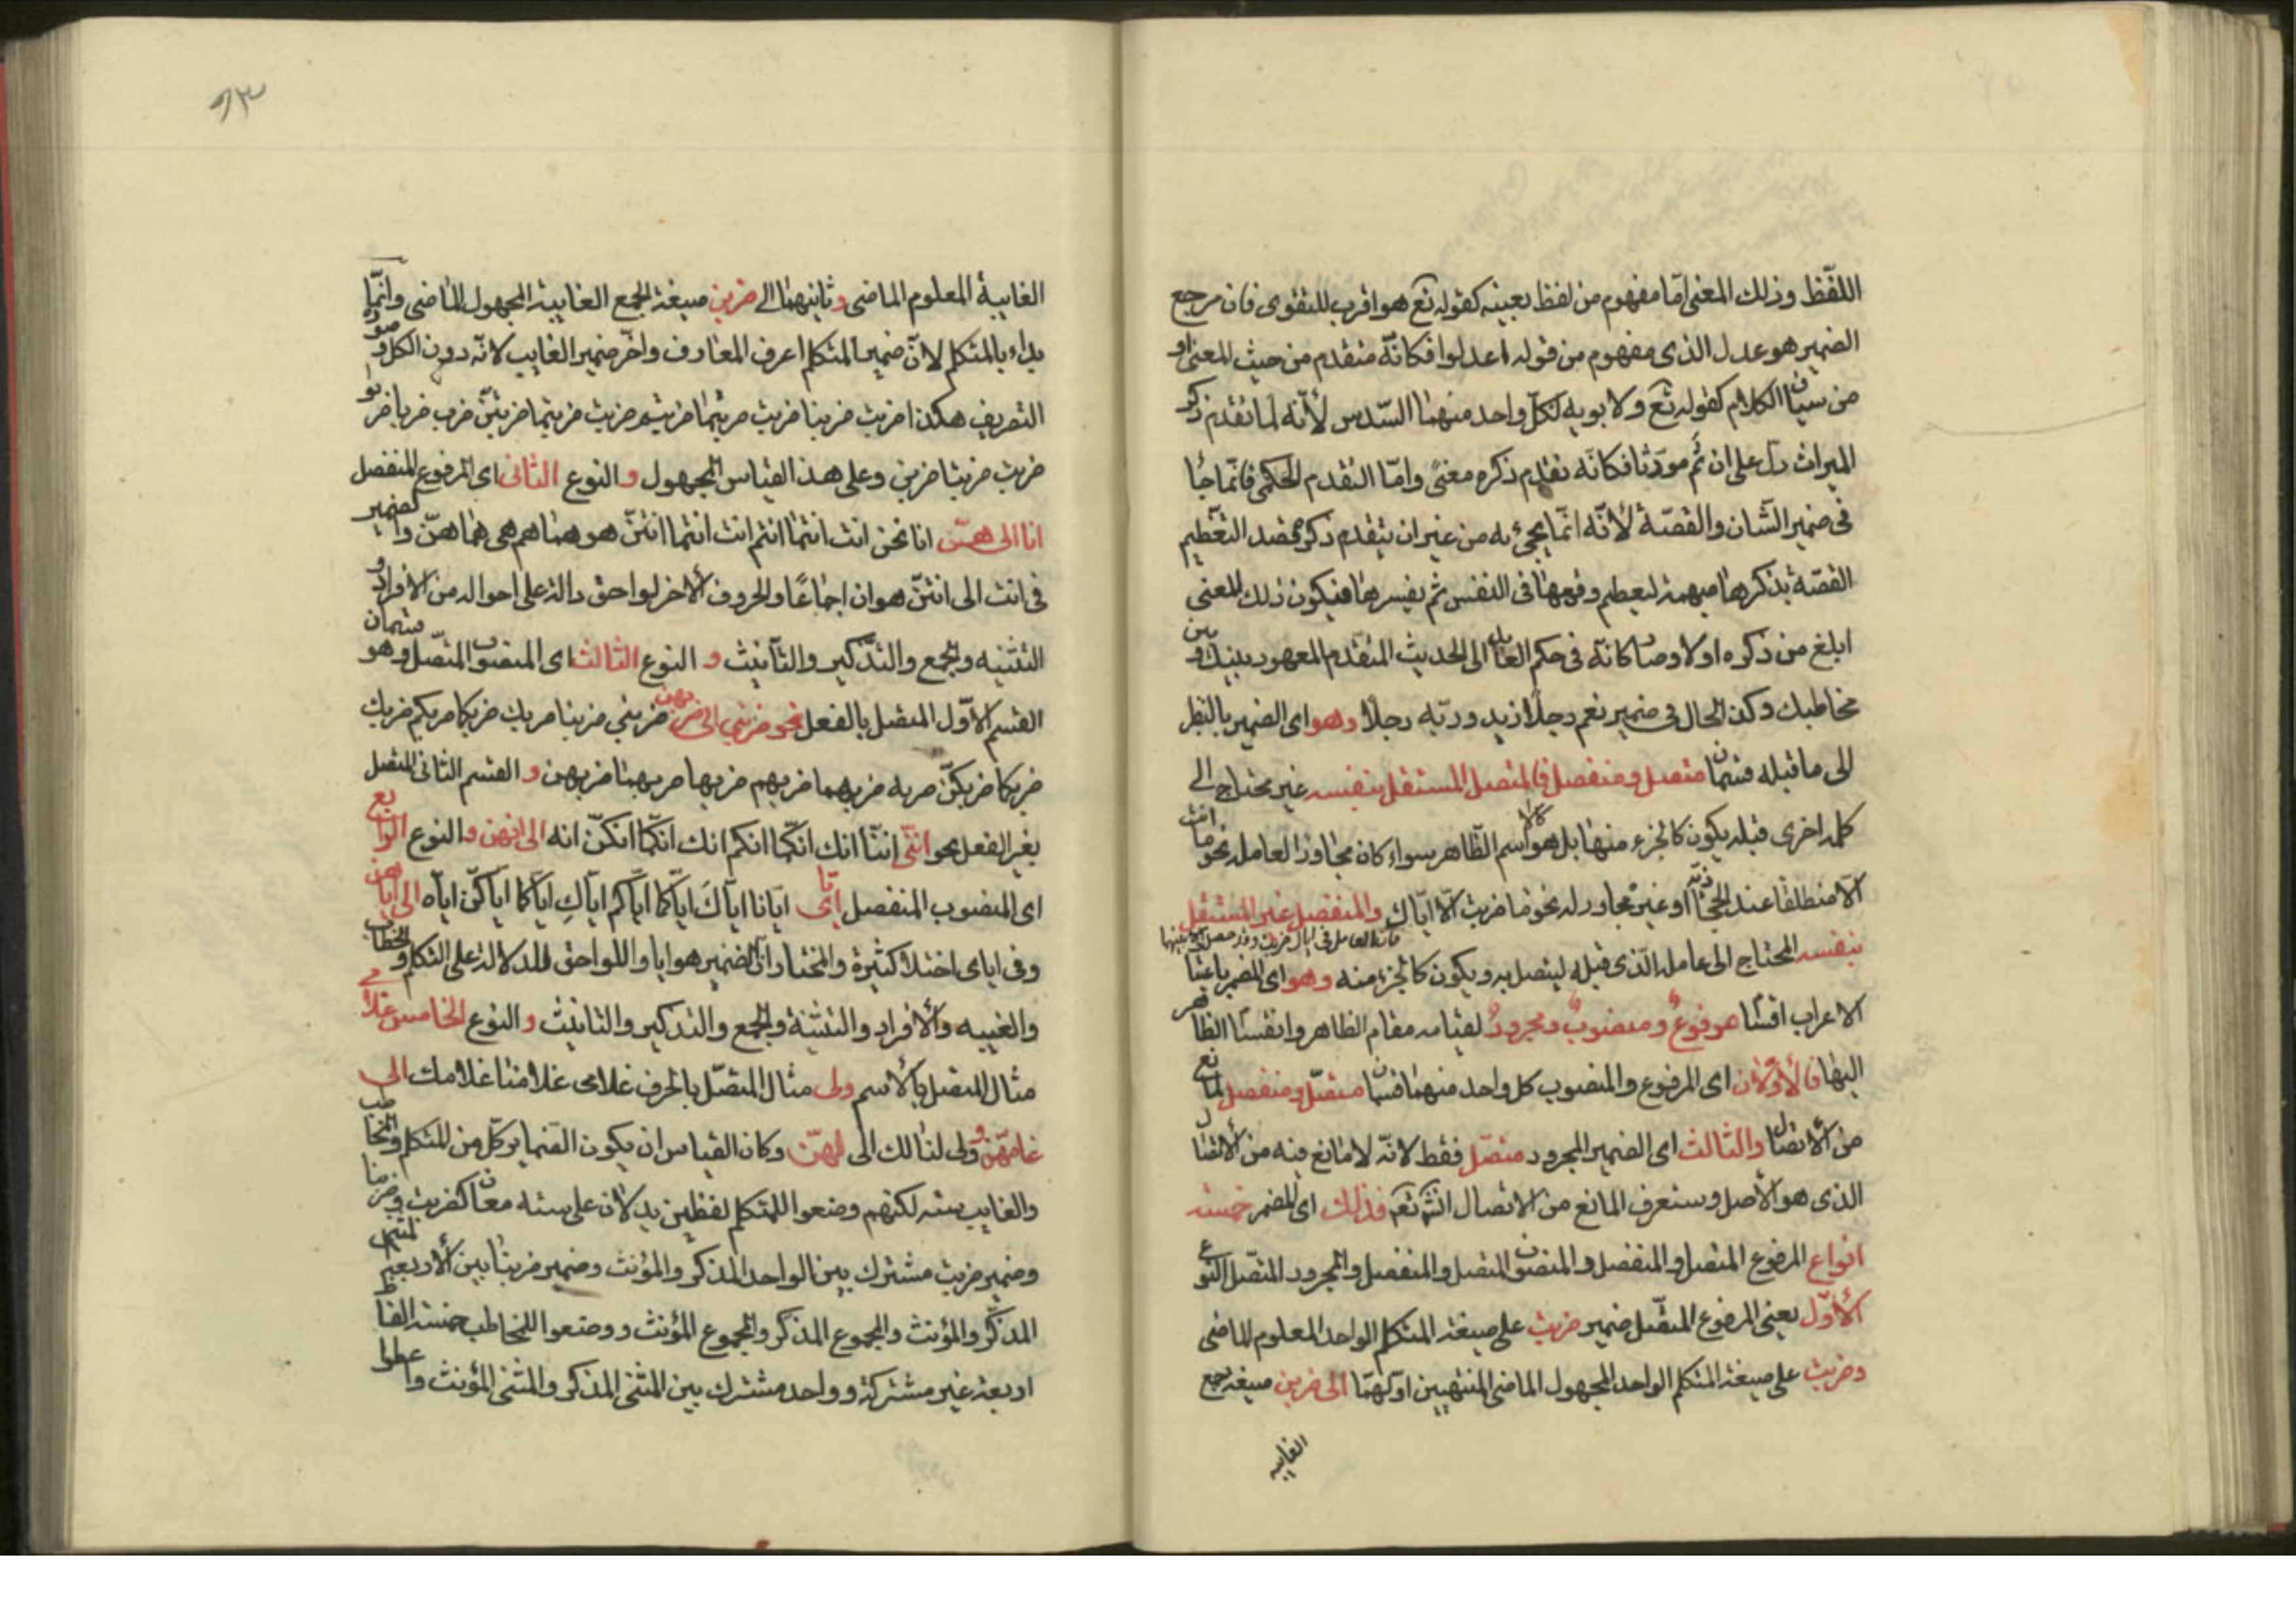 اللفظ وذلك المعنى اما مفهوم من لفظ بعينه كقوله تع هو اقرب للتقوى فان مرجع
الضمير هو عدل الذى مفهوم من قوله اعدلوا فكانه متقدم من حيث المعنى او
من سياق الكلام كقوله تع ولابويه لكل واحد منهما السدس لأنه لما تقدم ذكر
الميراث دل على ان ثم مورثا فكانه تقدم ذكره معنى واما التقدم الحكمى فانما جاء
فى ضمير الشان والقصة لأنه انما يجيء به من غير ان يتقدم ذكره بقصد التعظيم
القصة بذكرها مبهمة ليعظم وقوعها فى النفس ثم يفسرها فيكون ذلك المعنى
ابلغ من ذكره اولا وصار كانه فى حكم العايد الى الحديث المتقدم المعهود بينك وبين
مخاطبك وكذا الحال فى ضمير نعم رجلا زيد وربه رجلا وهو اى الضمير بالنظر
الى ما قبله قسمان متصل ومنفصل فالمتصل المستقل بنفسه غير محتاج الى
كلمة اخرى قبله يكون كالجزء منها بل هو كالاسم الظاهر سواء كان مجاورا لعامله نحو ما انت
الا منطلقا عند الحجازية او غير مجاور له نحو ما ضربت الا اياك والمنفصل غير المستقل
بنفسه المحتاج الى عامله الذى قبله ليتصل به ويكون كالجزء منه وهو اى المضمر باعتبار
الاعراب اقسام مرفوع ومنصوب ومجرور لقيامه مقام الظاهر وانقسام الظاهر
اليها فالأولان اى المرفوع والمنصوب كل واحد منهما قسمان متصل ومنفصل لمانع
من الأتصال والثالث اى الضمير المجرور متصل فقط لانه لا مانع فيه من الأتصال
الذى هو الأصل وستعرف المانع من الاتصال انش تع فذلك اى المضمر خمسة
انواع المرفوع المتصل والمنفصل والمنصوب المتصل والمنفصل والمجرور المتصل النوع
الأول يعنى المرفوع المتصل ضمير ضربت على صيغة المتكلم الواحد المعلوم الماضى
وضربت على صيغة المتكلم الواحد المجهول الماضى المنتهيين اولهما الى ضربن صيغة جمع
الغايبه
٩٣
الغايبة المعلوم الماضى وثانيهما الى ضربن صيغة الجمع الغايبة المجهول الماضى وانما
بداء بالمتكلم لان ضمير المتكلم اعرف المعارف واخر ضمير الغايب لانه دون الكل وصورة
التصريف هكذا ضربت ضربنا ضربت ضربتما ضربتم ضربت ضربتما ضربتن ضرب ضربا ضربوا
ضربت ضربتا ضربن وعلى هذا القياس المجهول والنوع الثانى اى المرفوع المنفصل
انا الى هن انا نحن انت انتما انتم انت انتما انتن هو هما هم هى هما هن والضمير
فى انت الى انتن هو ان اجماعا والحروف الأخر لواحق دالة على احواله من الأفراد و
التثنيه والجمع والتذكير والتأنيث و النوع الثالث اى المنصوب المتصل وهو قسمان
القسم الأول المتصل بالفعل نحو ضربنى الى ضربهن ضربنى ضربنا ضربك ضربكما ضربكم ضربك
ضربكما ضربكن ضربه ضربهما ضربهم ضربها ضربهما ضربهن و القسم الثانى المتصل
بغير الفعل نحو اننى اننا انك انكما انكم انك انكما انكن انه الى انهن والنوع الرابع
اى المنصوب المنفصل اياى ايانا اياك اياكما اياكم اياك اياكما اياكن اياه الى اياهن
وفى اياى اختلاف كثيرة والمختار ان الضمير هو ايا واللواحق للدلالة على التكلم والخطاب
والغيبه والأفراد والتثنية والجمع والتذكير والتانيث والنوع الخامس غلامى
مثال المتصل بالأسم ولى مثال المتصل بالحرف غلامى غلامنا غلامك الى
غلامهن و ولى لنا لك الى لهن وكان القياس ان يكون الضماير كل من المتكلم والمخاطب
والغايب سته لكنهم وضعوا للمتكلم لفظين يدلان على سته معان كضربت وضربنا
وضمير ضربت مشترك بين الواحد المذكر والمؤنث وضمير ضربنا بين الأربعه المثنى
المذكر والمؤنث والمجموع المذكر والمجموع المؤنث ووضعوا للمخاطب خمسة الفاظ
اربعة غير مشتركة وواحد مشترك بين المثنى المذكر والمثنى المؤنث واعطوا